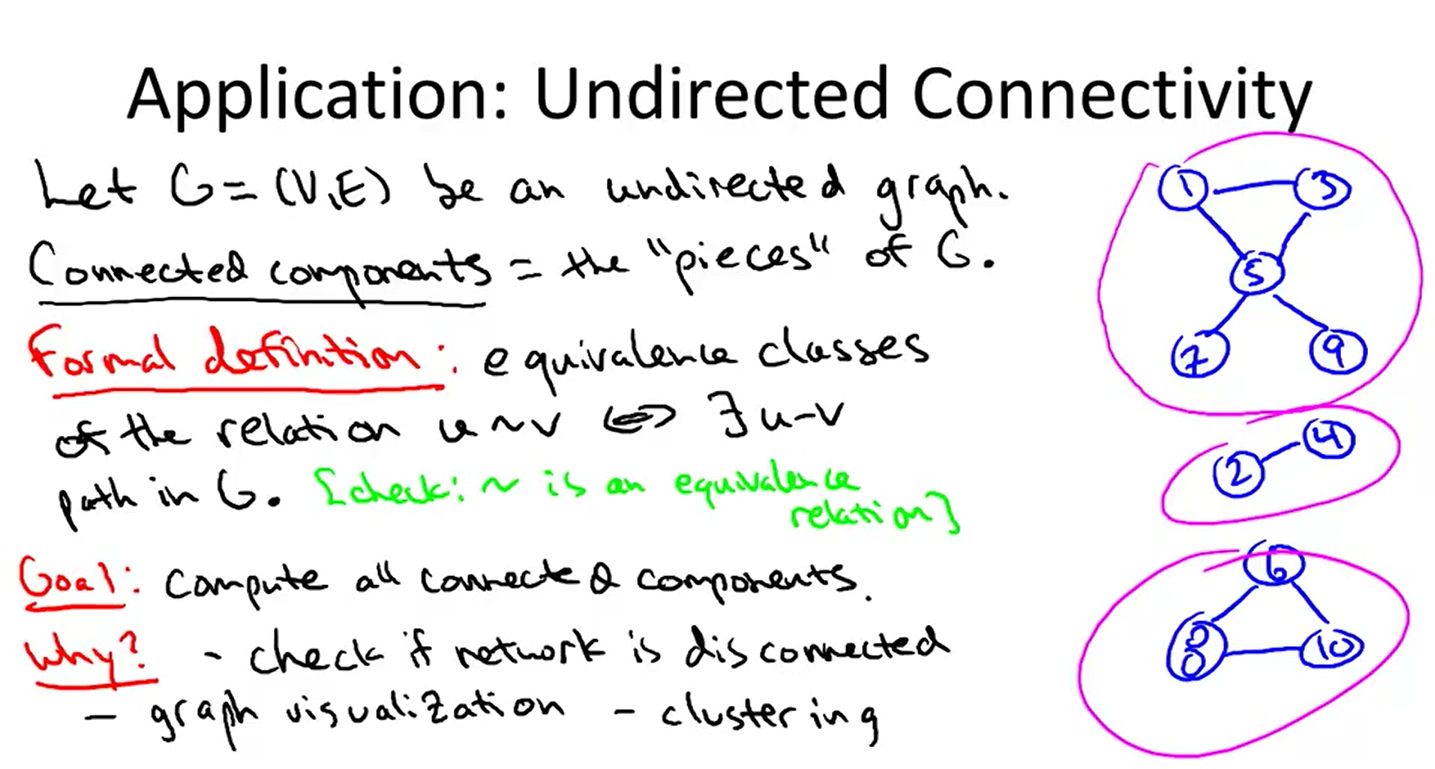 Application: Undirected Connectivity
Let G=(V,E) be an undirected graph.
Connected components = the "pieces" of G.
Formal definition: equivalence classes
of the relation u~v <=> ∃ u-v
path in G. [check: ~ is an equivalence
relation]
Goal: compute all connected components.
Why? - check if network is disconnected
- graph visualization - clustering
1 3
5
7 9
4
2
6
8 10